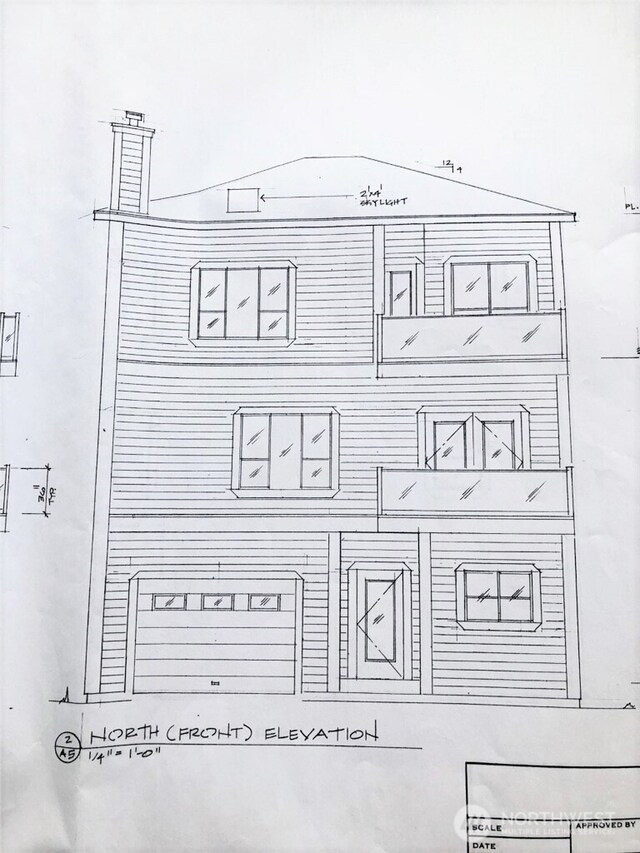 12
4
2'x4'
SKYLIGHT
PL.
36"
TYP.
2
A5
NORTH (FRONT) ELEVATION
1/4" = 1'-0"
NORTHWEST
SCALE
APPROVED BY
DATE